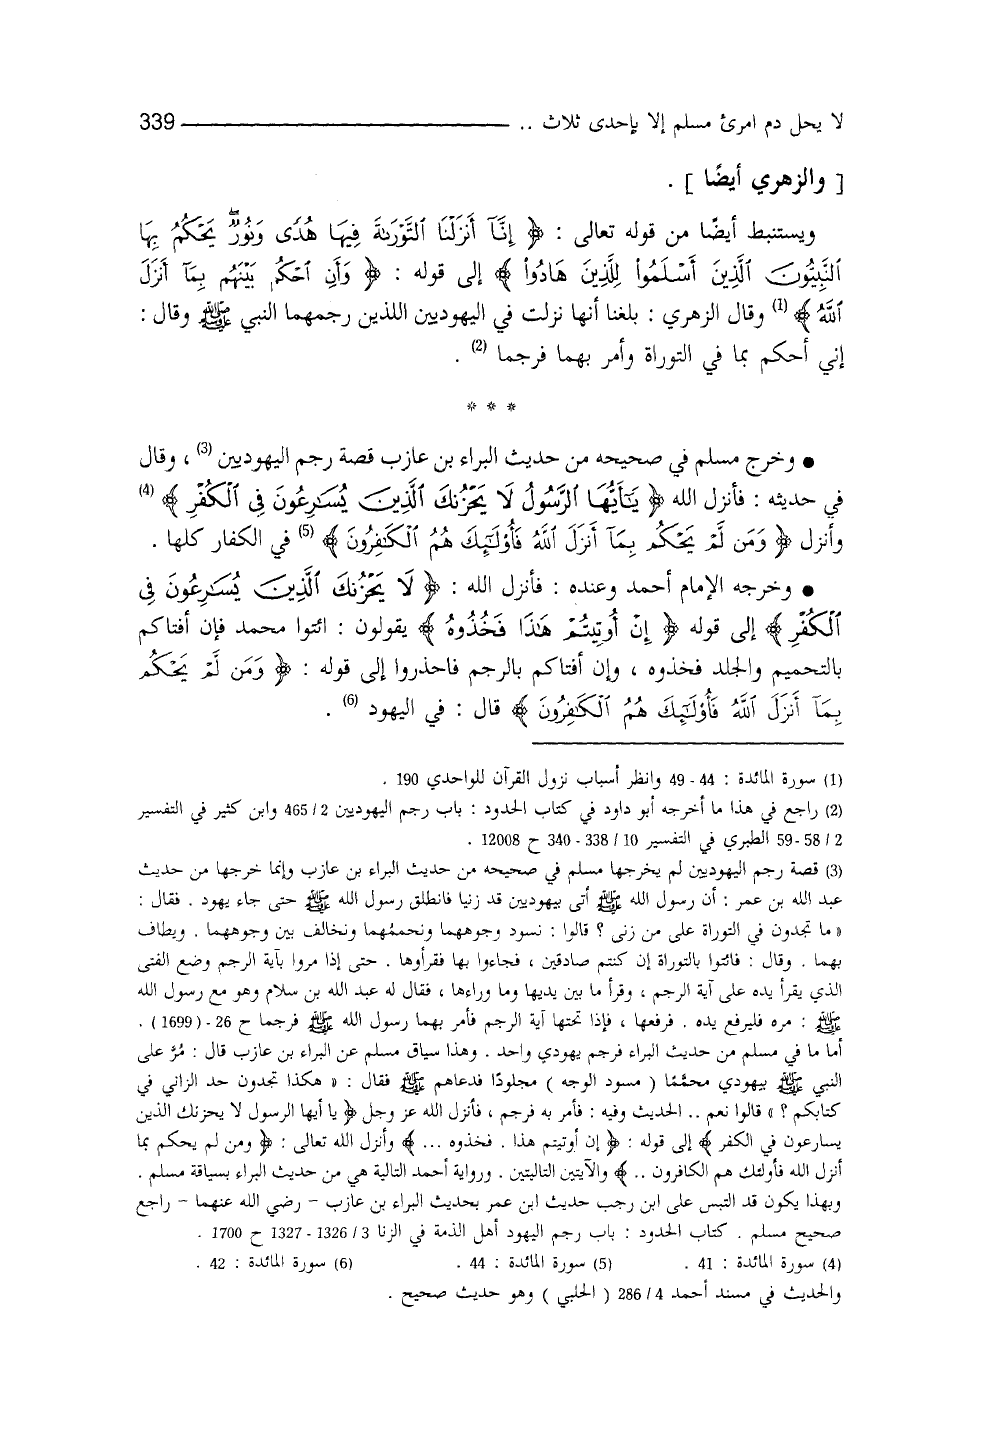 لا يحل دم امرئ مسلم إلا بإحدى ثلاث .. 339
[ والزهري أيضًا ] .
ويستنبط أيضًا من قوله تعالى : ﴿ إِنَّآ أَنزَلْنَا ٱلتَّوْرَىٰةَ فِيهَا هُدًى وَنُورٌ ۚ يَحْكُمُ بِهَا
ٱلنَّبِيُّونَ ٱلَّذِينَ أَسْلَمُوا۟ لِلَّذِينَ هَادُوا۟ ﴾ إلى قوله : ﴿ وَأَنِ ٱحْكُم بَيْنَهُم بِمَآ أَنزَلَ
ٱللَّهُ ﴾ (1) وقال الزهري : بلغنا أنها نزلت في اليهوديين اللذين رجمهما النبي ﷺ وقال :
إني أحكم بما في التوراة وأمر بهما فرجما (2) .
* * *
● وخرج مسلم في صحيحه من حديث البراء بن عازب قصة رجم اليهوديين (3) ، وقال
في حديثه : فأنزل الله ﴿ يَٰٓأَيُّهَا ٱلرَّسُولُ لَا يَحْزُنكَ ٱلَّذِينَ يُسَٰرِعُونَ فِى ٱلْكُفْرِ ﴾ (4)
وأنزل ﴿ وَمَن لَّمْ يَحْكُم بِمَآ أَنزَلَ ٱللَّهُ فَأُو۟لَٰٓئِكَ هُمُ ٱلْكَٰفِرُونَ ﴾ (5) في الكفار كلها .
● وخرجه الإمام أحمد وعنده : فأنزل الله : ﴿ لَا يَحْزُنكَ ٱلَّذِينَ يُسَٰرِعُونَ فِى
ٱلْكُفْرِ ﴾ إلى قوله ﴿ إِنْ أُوتِيتُمْ هَٰذَا فَخُذُوهُ ﴾ يقولون : ائتوا محمد فإن أفتاكم
بالتحميم والجلد فخذوه ، وإن أفتاكم بالرجم فاحذروا إلى قوله : ﴿ وَمَن لَّمْ يَحْكُم
بِمَآ أَنزَلَ ٱللَّهُ فَأُو۟لَٰٓئِكَ هُمُ ٱلْكَٰفِرُونَ ﴾ قال : في اليهود (6) .
(1) سورة المائدة : 44 - 49 وانظر أسباب نزول القرآن للواحدي 190 .
(2) راجع في هذا ما أخرجه أبو داود في كتاب الحدود : باب رجم اليهوديين 2 / 465 وابن كثير في التفسير
2 / 58 - 59 الطبري في التفسير 10 / 338 - 340 ح 12008 .
(3) قصة رجم اليهوديين لم يخرجها مسلم في صحيحه من حديث البراء بن عازب وإنما خرجها من حديث
عبد الله بن عمر : أن رسول الله ﷺ أتى بيهوديين قد زنيا فانطلق رسول الله ﷺ حتى جاء يهود . فقال :
« ما تجدون في التوراة على من زنى ؟ قالوا : نسود وجوههما ونحممُهما ونخالف بين وجوههما . ويطاف
بهما . وقال : فائتوا بالتوراة إن كنتم صادقين ، فجاءوا بها فقرأوها . حتى إذا مروا بآية الرجم وضع الفتى
الذي يقرأ يده على آية الرجم ، وقرأ ما بين يديها وما وراءها ، فقال له عبد الله بن سلام وهو مع رسول الله
ﷺ : مره فليرفع يده . فرفعها ، فإذا تحتها آية الرجم فأمر بهما رسول الله ﷺ فرجما ح 26 - ( 1699 ) .
أما ما في مسلم من حديث البراء فرجم يهودي واحد . وهذا سياق مسلم عن البراء بن عازب قال : مُرّ على
النبي ﷺ بيهودي محمَّمًا ( مسود الوجه ) مجلودًا فدعاهم ﷺ فقال : « هكذا تجدون حد الزاني في
كتابكم ؟ » قالوا نعم .. الحديث وفيه : فأمر به فرجم ، فأنزل الله عز وجل ﴿ يا أيها الرسول لا يحزنك الذين
يسارعون في الكفر ﴾ إلى قوله : ﴿ إن أوتيتم هذا . فخذوه ... ﴾ وأنزل الله تعالى : ﴿ ومن لم يحكم بما
أنزل الله فأولئك هم الكافرون .. ﴾ والآيتين التاليتين . ورواية أحمد التالية هي من حديث البراء بسياقة مسلم .
وبهذا يكون قد التبس على ابن رجب حديث ابن عمر بحديث البراء بن عازب - رضي الله عنهما - راجع
صحيح مسلم . كتاب الحدود : باب رجم اليهود أهل الذمة في الزنا 3 / 1326 - 1327 ح 1700 .
(4) سورة المائدة : 41 . (5) سورة المائدة : 44 . (6) سورة المائدة : 42 .
والحديث في مسند أحمد 4 / 286 ( الحلبي ) وهو حديث صحيح .